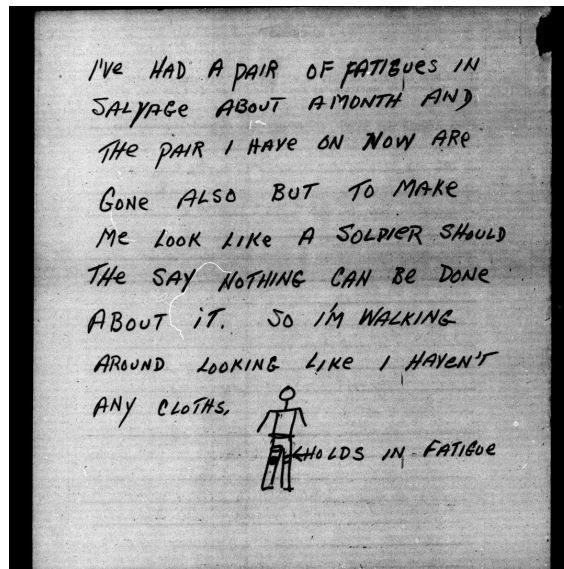 I'VE HAD A PAIR OF FATIGUES IN
SALVAGE ABOUT A MONTH AND
THE PAIR I HAVE ON NOW ARE
GONE ALSO BUT TO MAKE
ME LOOK LIKE A SOLDIER SHOULD
THE SAY NOTHING CAN BE DONE
ABOUT IT. SO I'M WALKING
AROUND LOOKING LIKE I HAVEN'T
ANY CLOTHS.
HOLDS IN FATIGUE